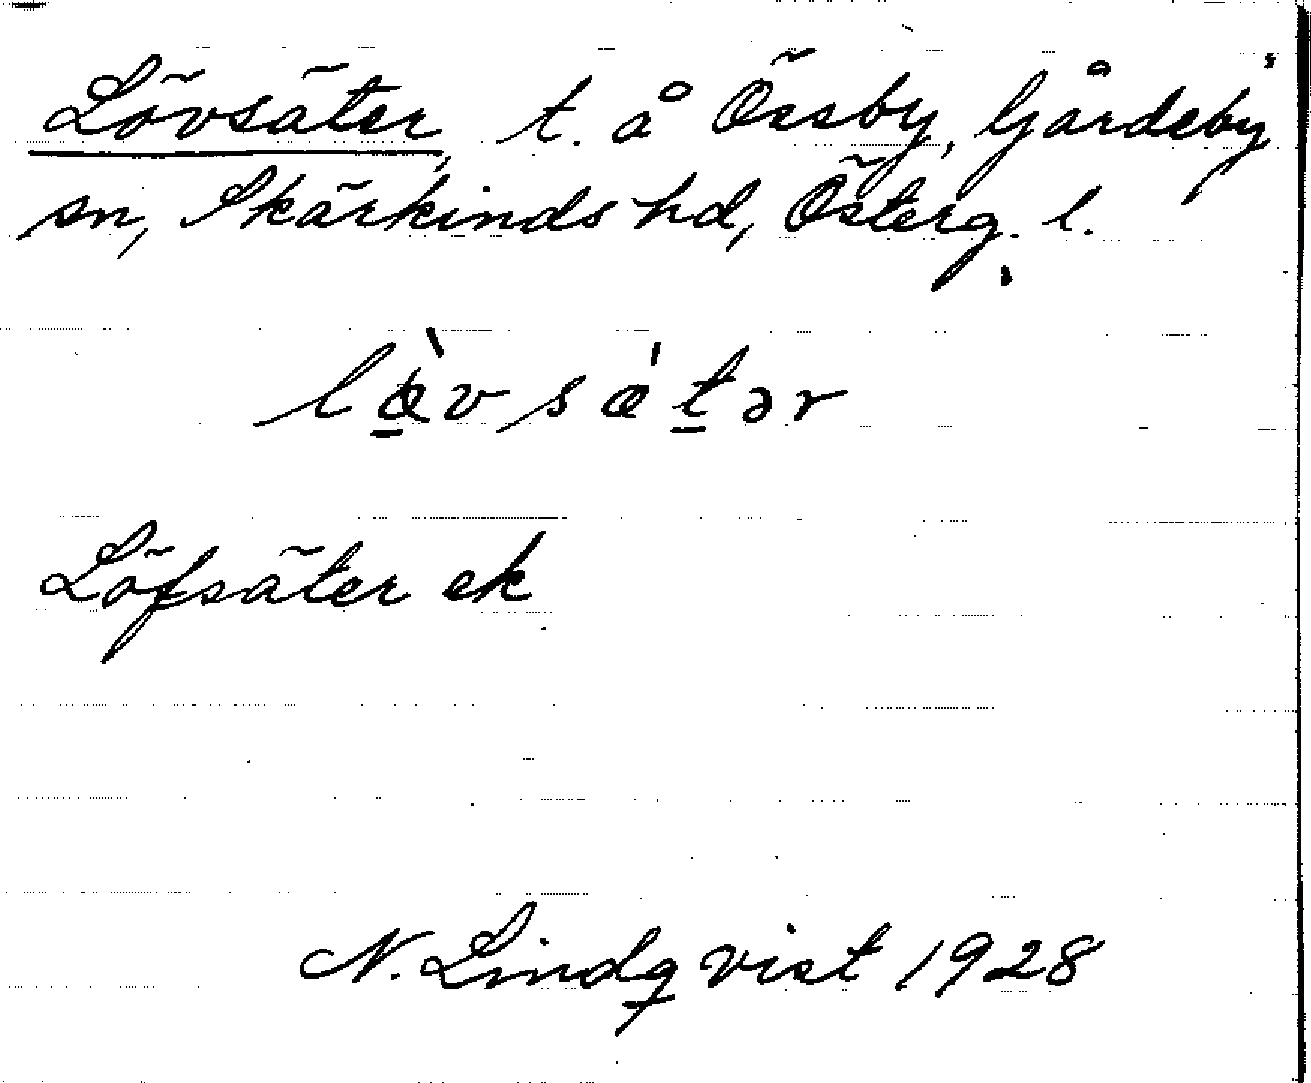 Lövsäter, t. å Össby, Gårdeby
sn, Skärkinds hd, Österg. l.
lœ̠̀vsǽt̠ər
Löfsäter ek
N. Lindqvist 1928